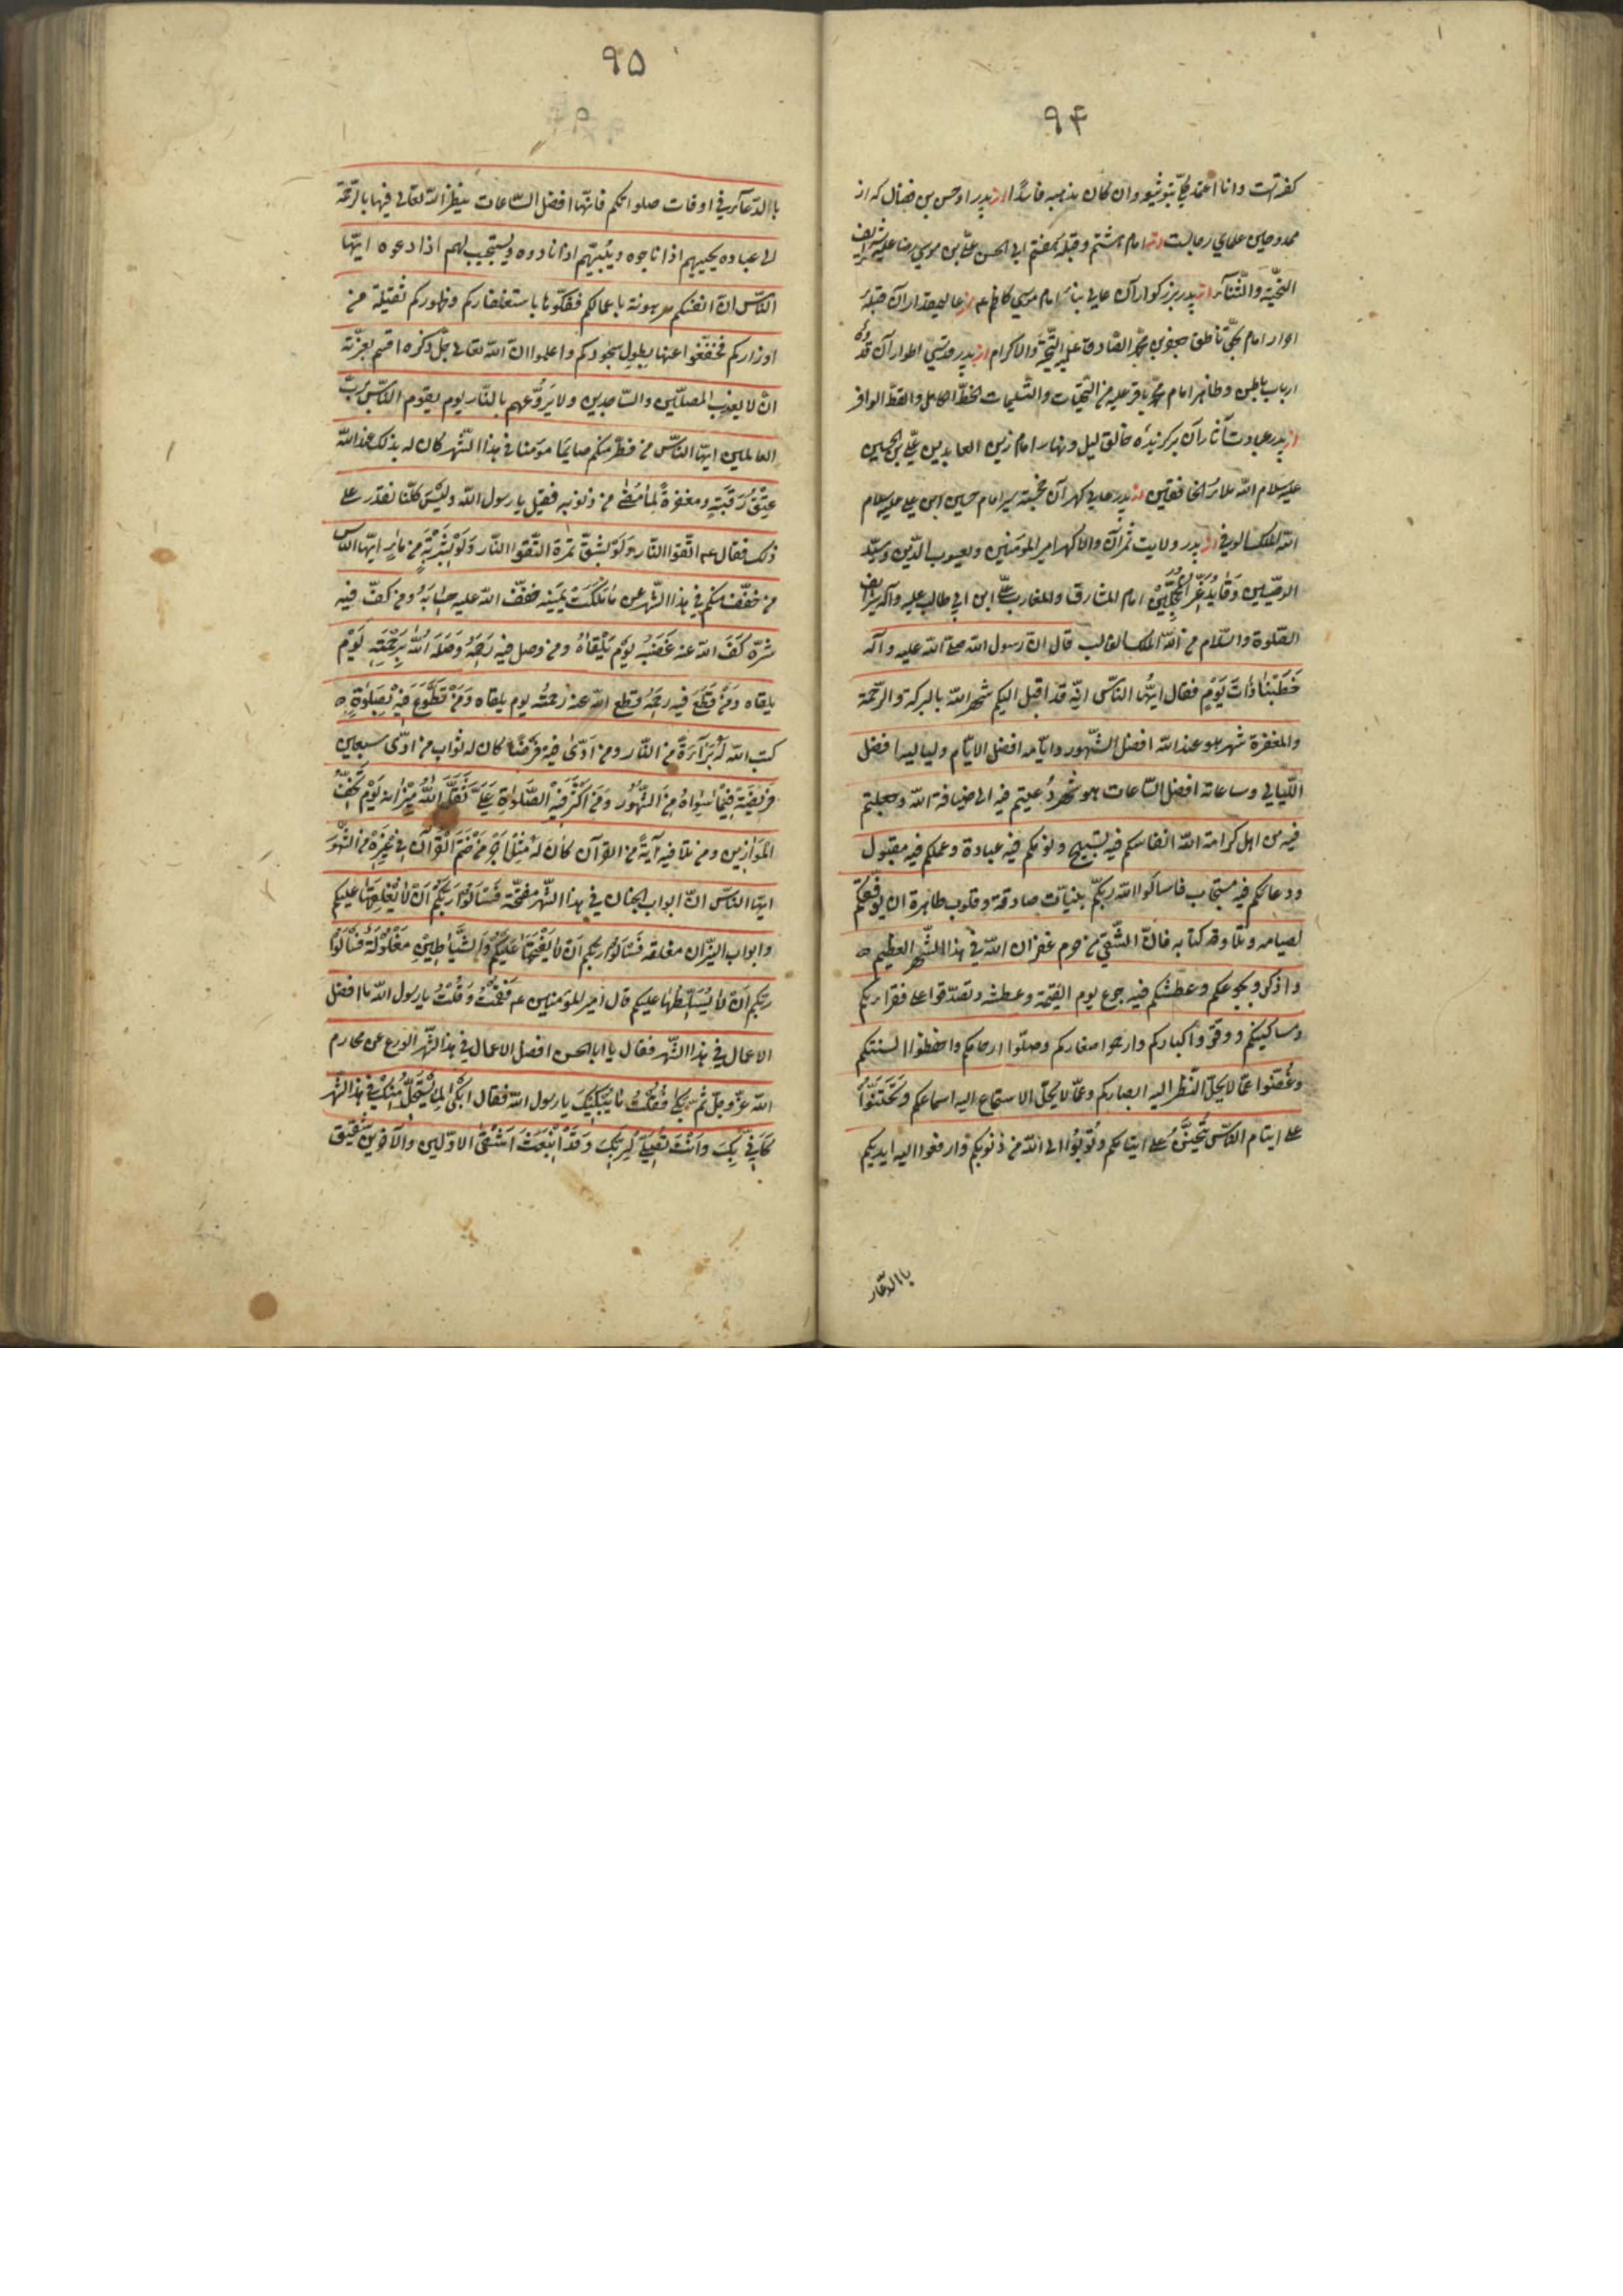 ۹۴
کفته‌است وانا اعتمد علی توثیقه وان کان مذهبه فاسدًا از پدر او حسن بن فضال که از
ممدوحین علمای رجالست از امام هشتم وقبلهٔ هفتم ابی الحسن علی بن موسی رضا علیه شرایف
التحیّة والثّنآء از پدر بزرکوار آن عالی بناء امام موسی کاظم ع از عالیمقدار آن قبلهٔ
احرار امام بحق ناطق جعفر بن محمّد الصّادق علیه التّحیّة والاکرام از پدر قدسی اطوار آن قدوهٔ
ارباب باطن وظاهر امام محمّد باقر علیه من التّحیّات والتّسلیمات الحظّ الکامل والقسط الوافر
از پدر عبادت آثار آن برکزیدهٔ خالق لیل ونهار امام زین العابدین علیّ بن الحسین
علیه سلام الله ملاء الخافقین از پدر عالی کهر آن خجسته سیر امام حسین ابن علی علیه سلام
الله الملک الوفی از پدر ولایت ثمر آن والا کهر امیر المؤمنین ویعسوب الدّین وسیّد
الوصیّین وقاید الغرّ المحجّلین امام المشارق والمغارب علیّ ابن ابی طالب علیه وآله شرایف
الصّلوة والسّلام من الله الملک الغالب قال انّ رسول الله صلّی الله علیه وآله
خَطَبَنٰا ذٰاتَ یَوْمٍ فقال ایّها النّاس انّه قد اقبل الیکم شهر الله بالبرکة والرّحمة
والمغفرة شهر هو عند الله افضل الشّهور وایّامه افضل الایّام ولیالیه افضل
اللّیالی وساعاته افضل السّاعات هو شهر دُعیتم فیه الی ضیافة الله وجعلتم
فیه من اهل کرامة الله انفاسکم فیه تسبیح ونومکم فیه عبادة وعملکم فیه مقبول
ودعائکم فیه مستجاب فاسالوا الله ربّکم بنیّات صادقة وقلوب طاهرة ان یوفّقکم
لصیامه وتلاوة کتابه فانّ الشّقیّ من حرم غفران الله فی هذا الشّهر العظیم
واذکروا بجوعکم وعطشکم فیه جوع یوم القیٰمة وعطشه وتصدّقوا علی فقرائکم
ومساکینکم ووقّروا کبارکم وارحموا صغارکم وصلوا ارحامکم واحفظوا السنتکم
وغُضّوا عمّا لا یحلّ النّظر الیه ابصارکم وعمّا لا یحلّ الاستماع الیه اسماعکم وتحنّنوا
علی ایتام النّاس یُتحنّن علی ایتامکم وتُوبُوا الی الله من ذنوبکم وارفعوا الیه ایدیکم
باالدّعاء
۹۵
باالدّعآء فی اوقات صلواتکم فانّها افضل السّاعات ینظر الله تعالی فیها بالرّحمة
الی عباده یجیبهم اذا ناجوه ویُلبّیهم اذا نادوه ویستجیب لهم اذا دعوه ایّها
النّاس انّ انفسکم مرهونة باعمالکم ففکّوها باستغفارکم وظهورکم ثقیلة من
اوزارکم فخفّفوا عنها بطول سجودکم واعلموا انّ الله تعالی جلّ ذکره اقسم بعزّته
ان لا یعذب المصلّین والسّاجدین ولا یُروّعهم بالنّار یوم یقوم النّاس لربّ
العالمین ایّها النّاس من فطّر منکم صایمًا مؤمنا فی هذا الشّهر کان له بذلک عند الله
عِتْقُ رَقَبَةٍ ومغفرةٌ لِمٰا مَضٰی من ذنوبه فقیل یا رسول الله ولَیْسَ کلّنا نقدر علی
ذلک فقال ع اتّقوا النّار ولَوْ بشقّ تمرة اتّقوا النّار وَلَوْ بِشَرْبَةٍ من مٰاءٍ ایّها النّاس
من خفّف منکم فی هذا الشّهر عن مٰا مَلَکَتْ یَمینه خفّف الله علیه حِسٰابَهُ ومن کفّ فیه
شرّه کَفَّ الله عنه غَضَبَهُ یَوْم یَلْقٰاهُ ومن وصل فیه رَحِمَهُ وَصَلَهُ اللهُ بِرَحْمَتِهِ یَوْم
یلقاه وَمَنْ قَطَعَ فیه رحمَهُ قطع الله عنه رحمتَه یوم یلقاه ومَنْ تَطَوَّعَ فیه بِصَلوٰةٍ
کتب الله لَهُ بَرٰآءَةً من النّار ومن اَدّیٰ فیه فَرْضًا کان له ثواب من ادّی سبعین
فَریضَةً فیٖمٰا سِوٰاهُ مِنَ الشُّهُورِ وَمَنْ اَکْثَرَ فیٖهِ الصَّلوٰةَ عَلَیَّ ثَقَّلَ اللهُ میٖزٰانه یَوْم تَخِفُّ
المَوٰازین ومن تلا فیه آیةً من القرآن کٰانَ لَهُ مِثْلُ اَجْرِ مَنْ خَتَمَ الْقُرْآنَ فی غَیْرِهِ من الشُّهُور
ایّها النّاس انّ ابواب الجنان فی هذا الشّهر مفتّحة فَسْاَلُوا رَبَّکُمْ اَنْ لٰا یُغْلِقَهٰا علیکم
وابواب النّیران مغلقه فَسْاَلُوا ربّکم اَنْ لٰا یَفْتَحَهٰا عَلَیْکُمْ والشَّیٰاطیٖنِ مَغْلُولَةٌ فَسْاَلُوا
ربّکم اَنْ لٰا یُسَلِّطَهٰا علیکم قال امیر المؤمنین ع فَقُمْتُ وقُلْتُ یا رسول الله ما افضل
الاعمال فی هذا الشّهر فقال یا ابا الحسن افضل الاعمال فی هذا الشّهر الورع عن محارم
الله عزّ وجلّ ثم بکی فقُلْتُ مٰا یُبْکیٖکَ یا رسول الله فقال ابْکی لِمٰا یُسْتَحَلُّ مِنْکَ فی هذا الشّهر
کَاَنّیٖ بِکَ واَنْتَ تُصَلّیٖ لِرَبِّکَ وَقَدِ انْبَعَثَ اَشْقَی الاوّلین والآخرین شَقیق